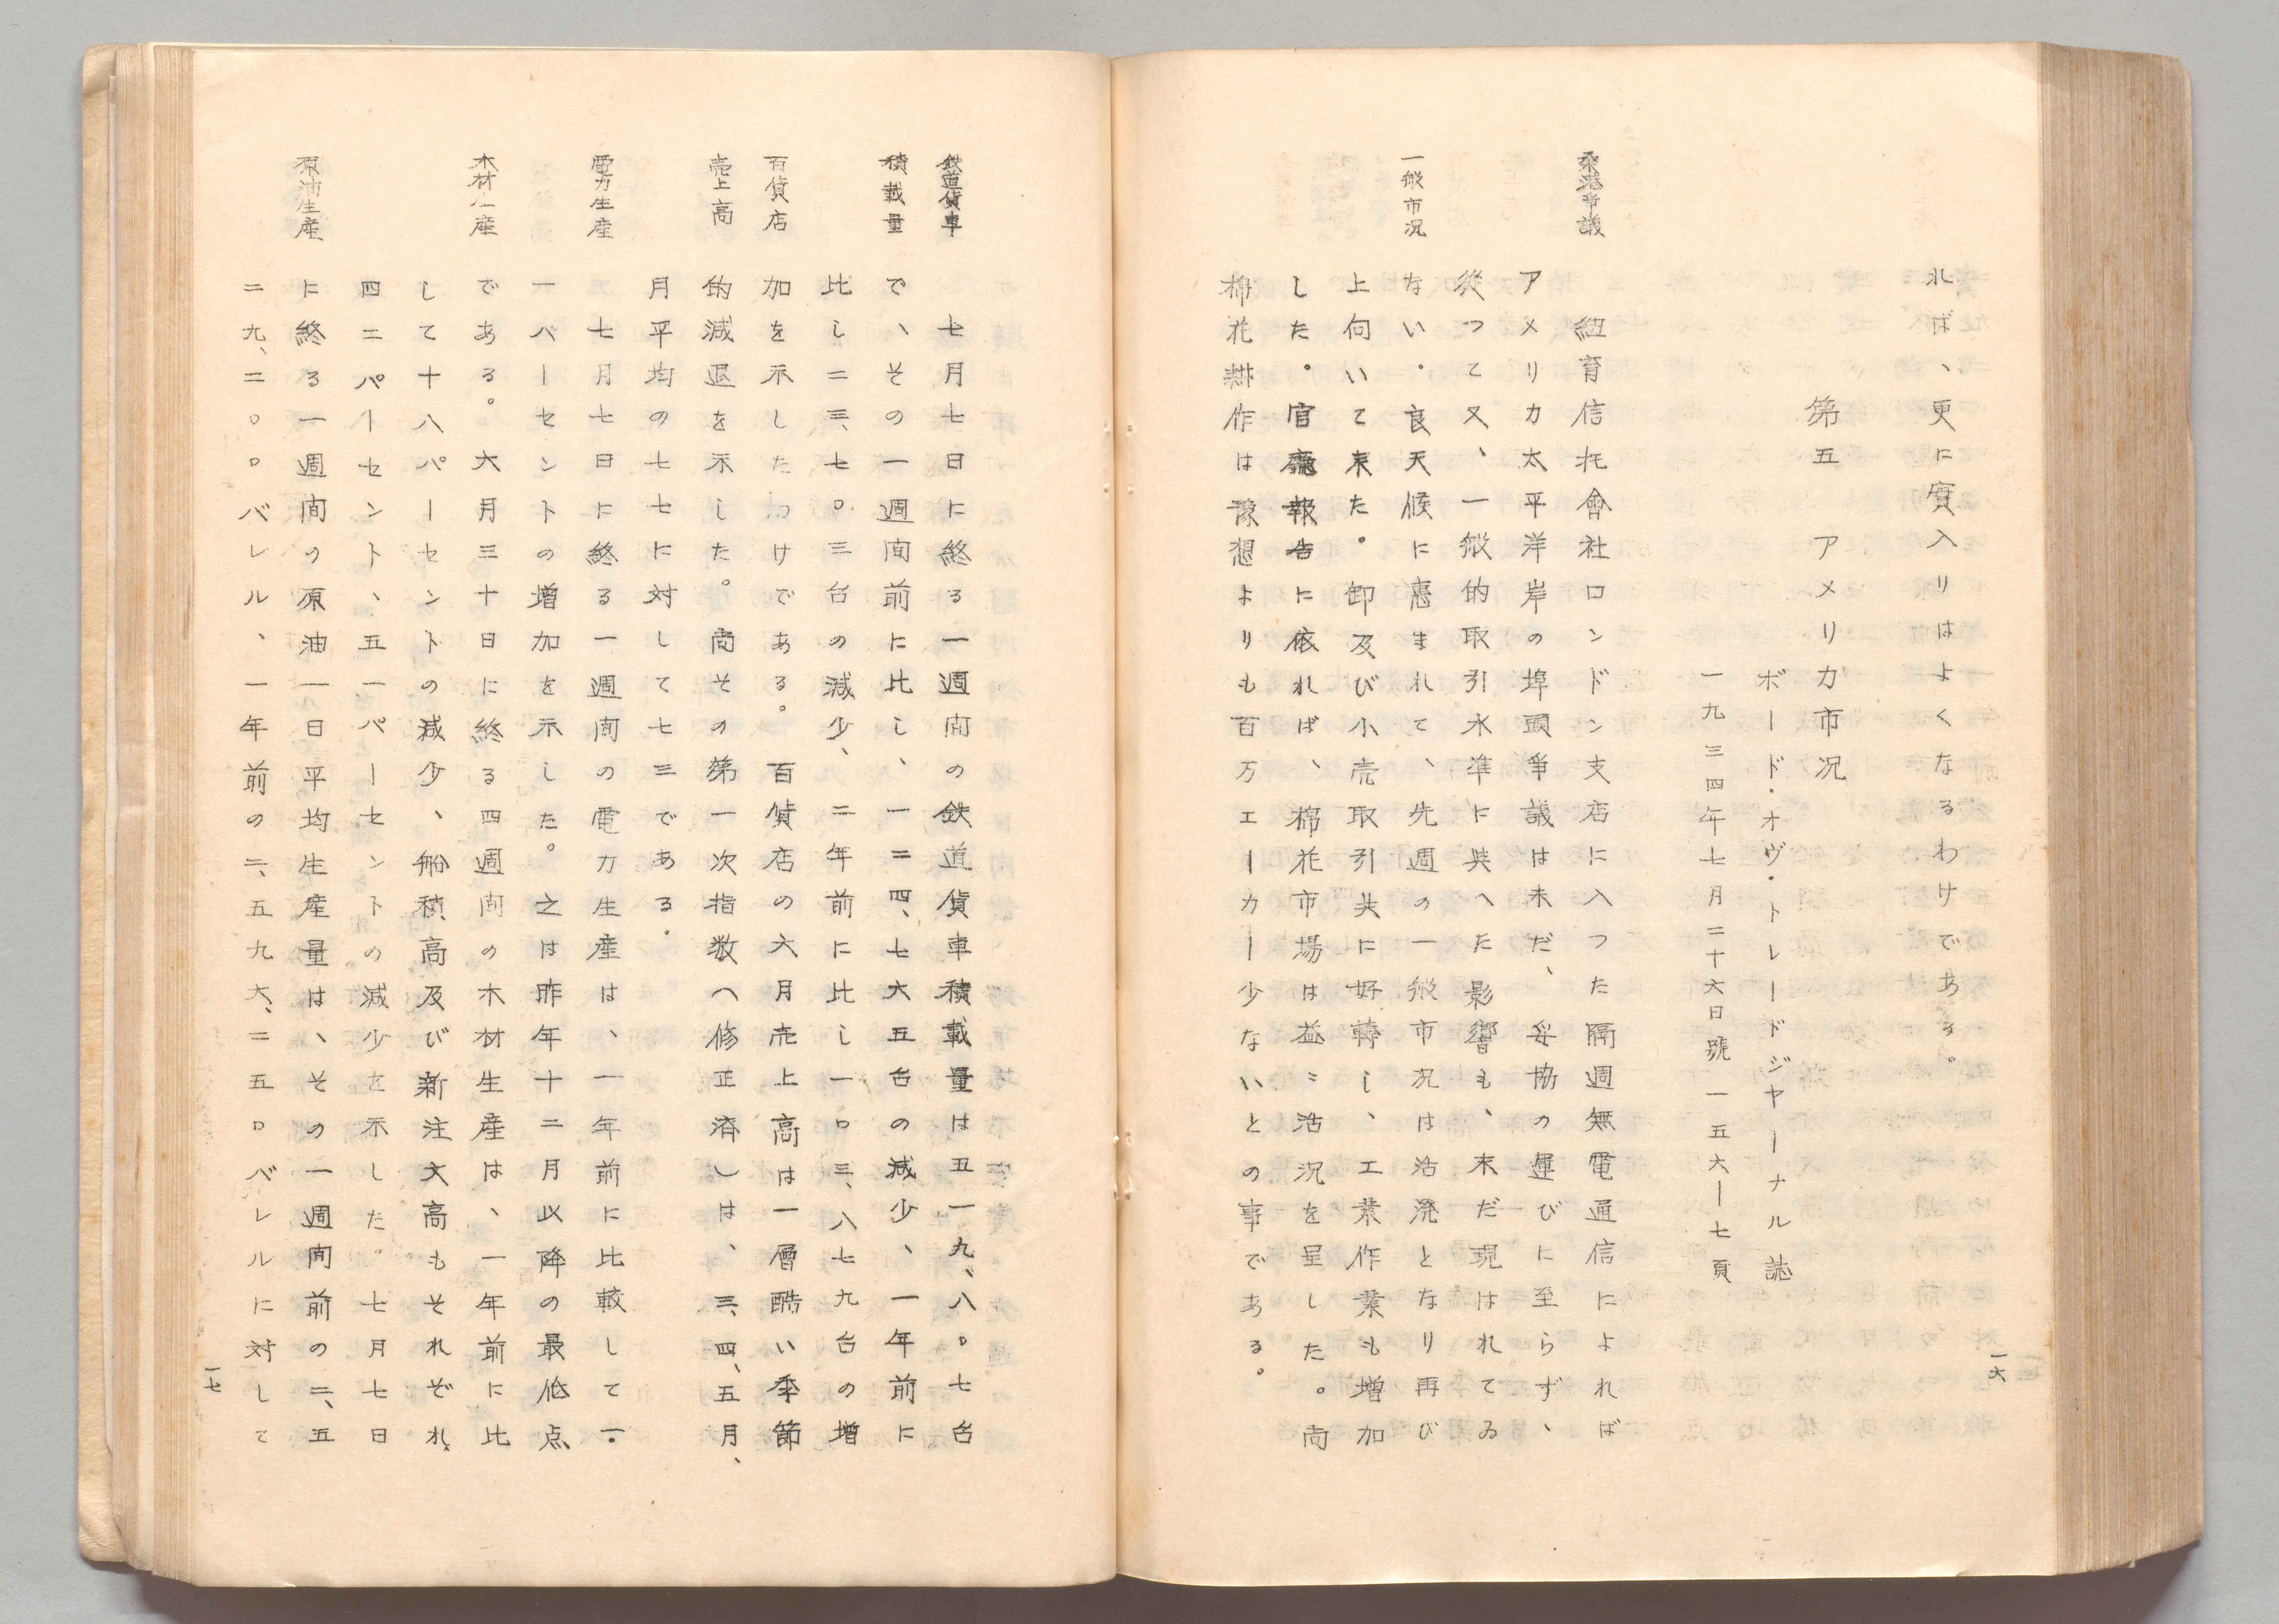 れば、更に實入りはよくなるわけである。
第五　アメリカ市況
ボード・オヴ・トレードジャーナル誌
一九三四年七月二十六日號　一五六ー七頁
爭議
紐育信托會社ロンドン支店に入つた隔週無電通信によれば
アメリカ太平洋岸の埠頭爭議は未だ、妥協の運びに至らず、
從つて又、一般的取引水準に與へた影響も、未だ現はれてゐ
一般市況
ない。良天候に惠まれて、先週の一般市况は活溌となり再び
上向いて来た。卸及び小売取引共に好轉し、工業作業も増加
した。官廳報告に依れば、棉花市場は益〻活況を呈した。尚
棉花耕作は豫想よりも百万エーカー少ないとの事である。
一六
鉄道貨車
積載量
七月七日に終る一週間の鉄道貨車積載量は五一九、八〇七台
で、その一週間前に比し、一二四、七六五台の減少、一年前に
比し二三、七〇三台の減少、二年前に比し一〇三、八七九台の増
百貨店
売上高
加を示したわけである。百貨店の六月売上高は一層酷い季節
的減退を示した。尚その第一次指数（修正済）は、三、四、五月、
月平均の七七に対して七三である。
電力生産
七月七日に終る一週間の電力生産は、一年前に比較して一・
一パーセントの増加を示した。之は昨年十二月以降の最低点
木材生産
である。六月三十日に終る四週間の木材生産は、一年前に比
して十八パーセントの減少、船積高及び新注文高もそれぞれ
四二パーセント、五一パーセントの減少を示した。七月七日
原油生産
に終る一週間の原油一日平均生産量は、その一週間前の二、五
二九、二〇〇バレル、一年前の二、五九六、二五〇バレルに対して
一七